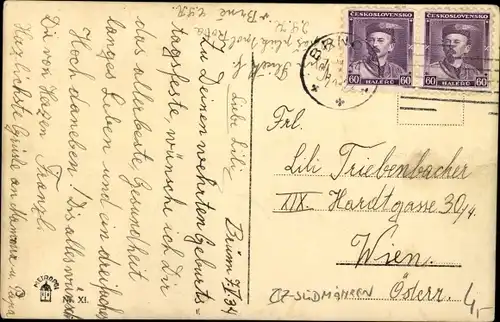 Liebe Lili
Brünn 7/V 34
Zu Deinem werten Geburts=
tagsfeste wünsche ich Dir
das allerbeste Gesundheit
langes Leben und ein dreifaches
Hoch daneben! Dis alles wünscht
Dir von Herzen Franzl.
Herzlichste Grüße an Mama u. Papa
ČESKOSLOVENSKO
60 HALÉŘŮ 60
ČESKOSLOVENSKO
60 HALÉŘŮ 60
BRNO
Frl.
Lili Triebenbacher
XIX. Hardtgasse 30/4.
Wien
Österr.
CZ-SÜDMÄHREN
4,-
XI.